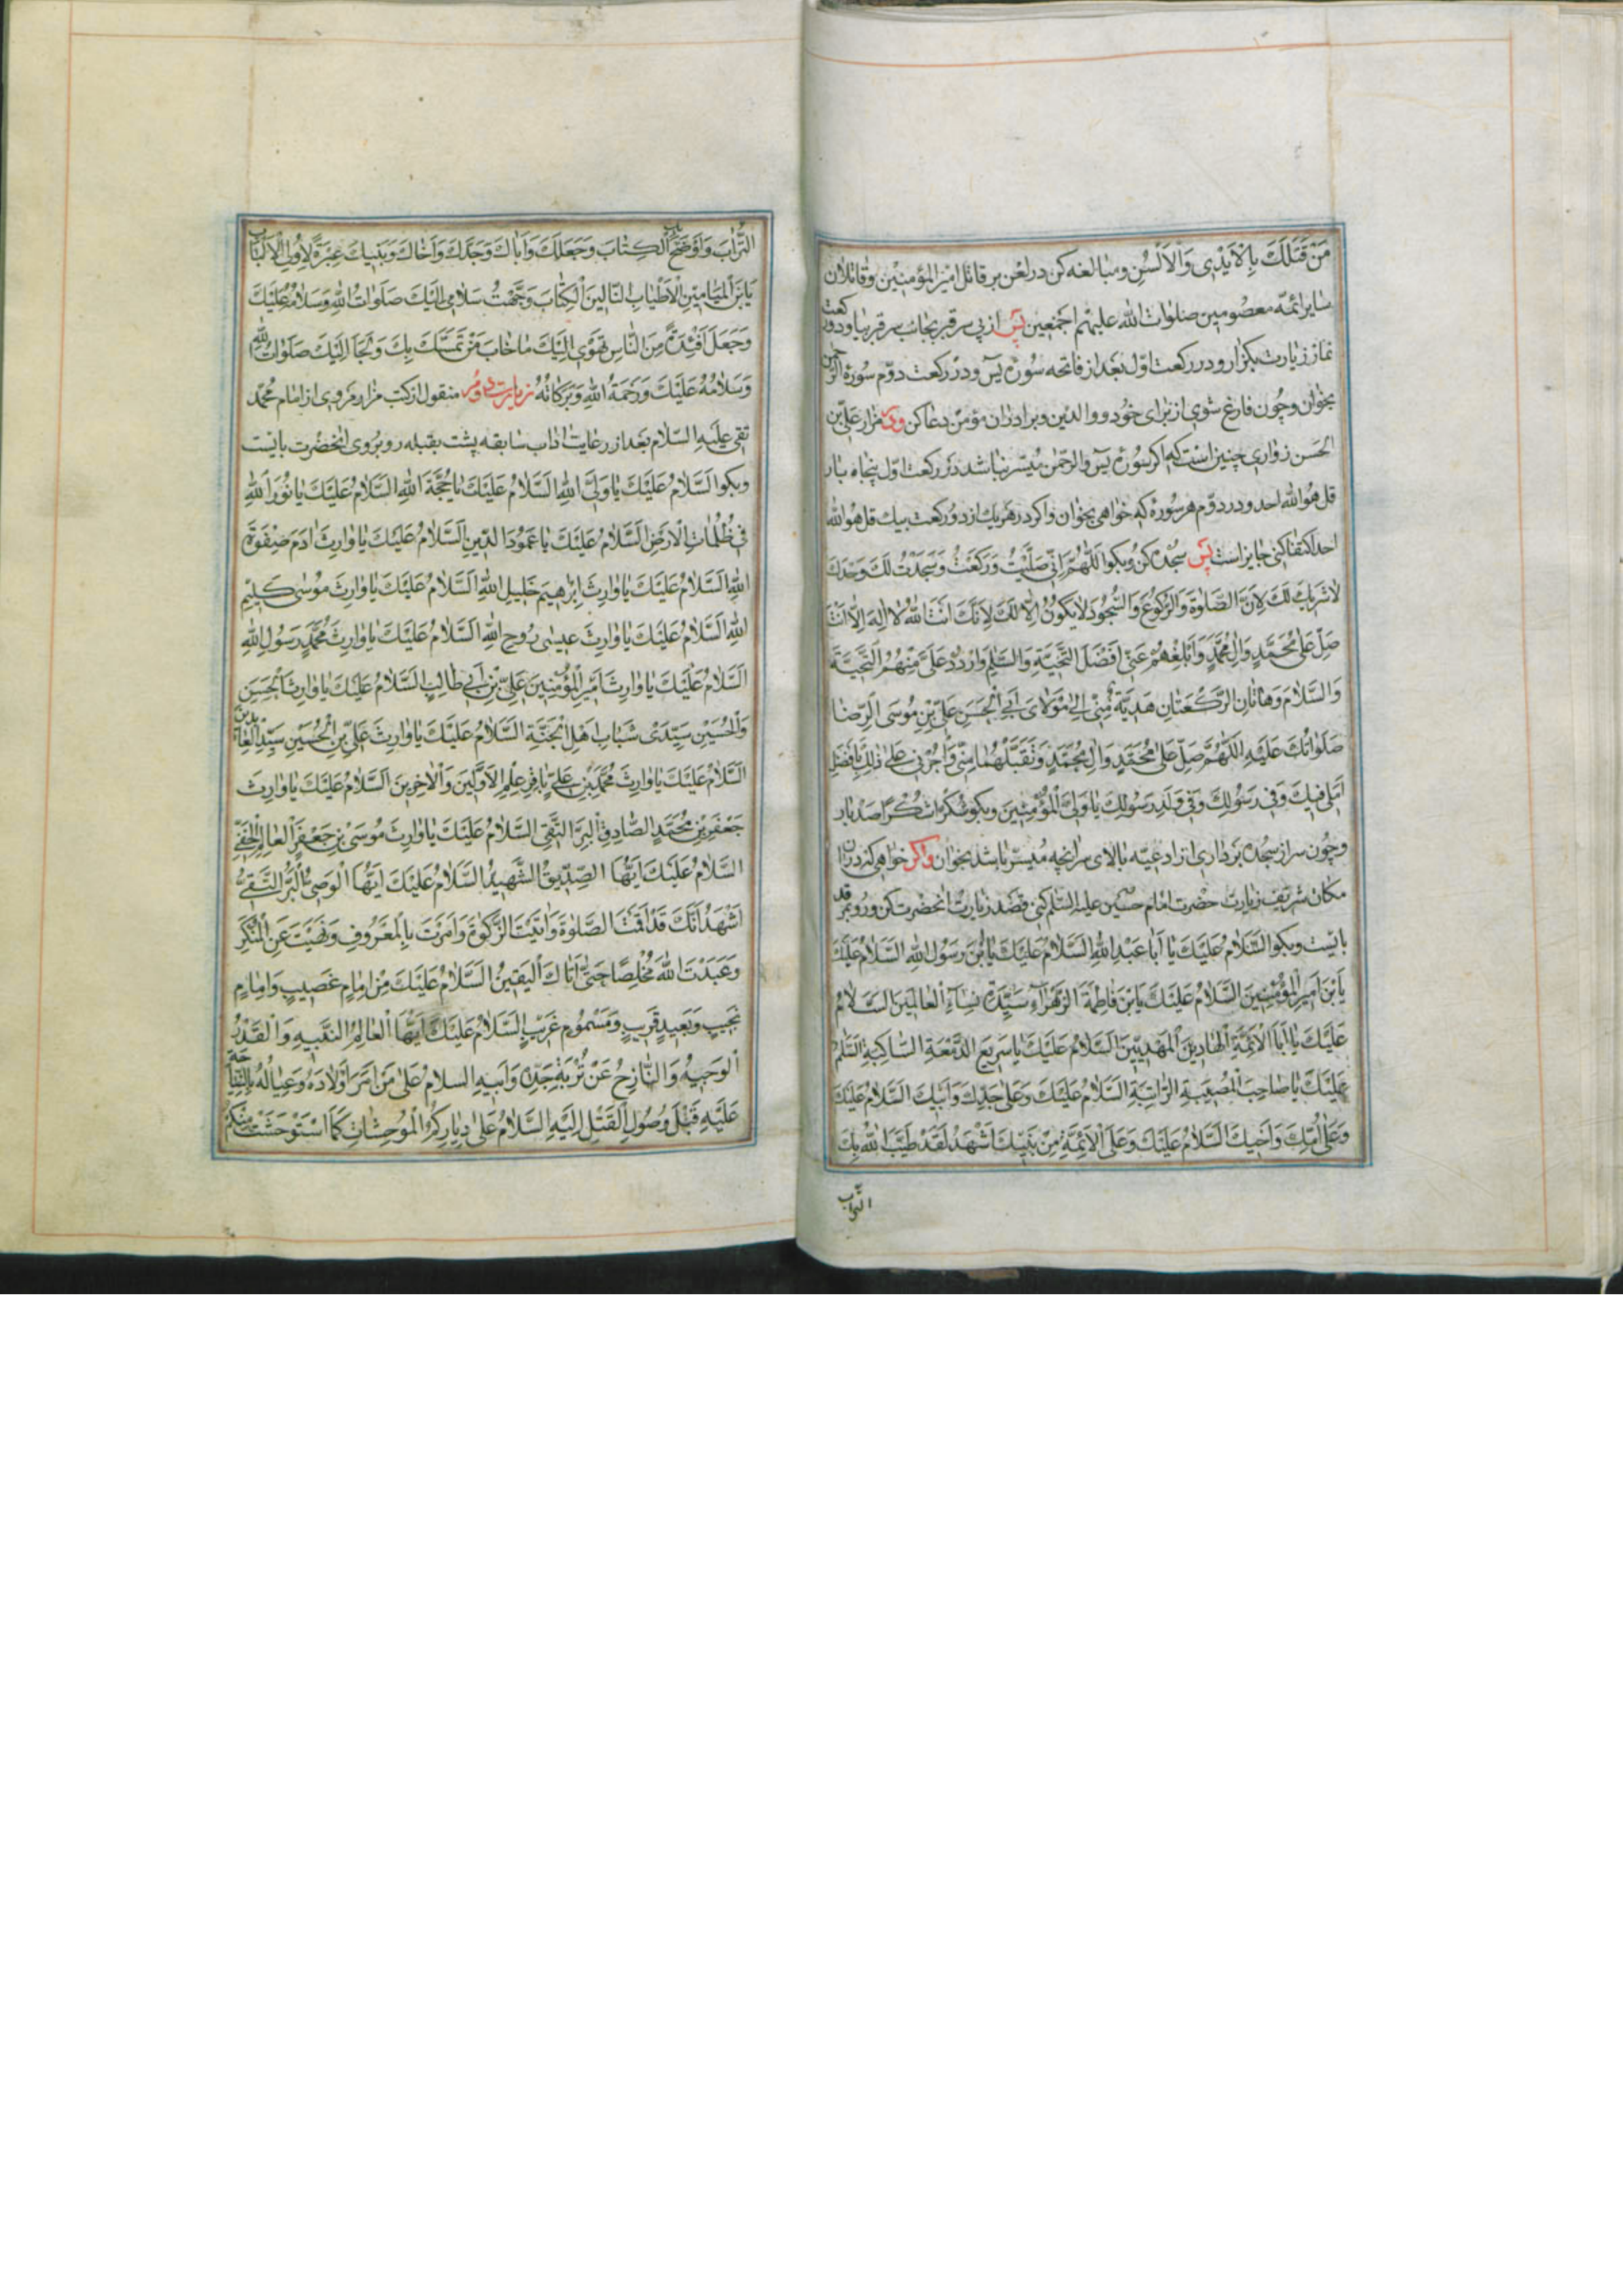 مَنْ قَتَلَكَ بِالْاَیْدِی وَالْاَلْسُنِ ومبالغه کن در لعن بر قاتل امیر المؤمنین وقاتلان
سایر ائمّه معصومین صلوات الله علیهم اجمعین پس از پی سر قبر بجانب سر قبر بیا ودو رکعت
نماز زیارت بکزار ودر رکعت اوّل بعد از فاتحه سُورۀ یٓس ودر رکعت دوّم سورۀ الرّحمن
بخوان وچون فارغ شوی از برای خود ووالدین وبرادران مؤمن دعا کن ودر مزار علی بن
الحسن زواری چنین است که اکر سُورۀ یٓس والرّحمن میسّر نباشد در رکعت اوّل پنجاه بار
قل هُوالله احد ودر دوّم هر سُوره که خواهی بخوان واکر در هر یک از دو رکعت بیک قل هوالله
احد اکتفا کنی جایز است پس سجده کن وبکو اَللّٰهُمَّ اِنّی صَلَّیْتُ وَرَکَعْتُ وَسَجَدْتُ لَکَ وَحْدَکَ
لا شَریکَ لَکَ لِاَنَّ الصَّلوٰةَ وَالرُّکُوعَ وَالسُّجُودَ لا یَکُونُ اِلّا لَکَ لِاَنَّکَ اَنْتَ اللهُ لا اِلٰهَ اِلّا اَنْتَ
صَلِّ عَلیٰ مُحَمَّدٍ وَاٰلِ مُحَمَّدٍ وَاَبْلِغْهُمْ عَنّی اَفْضَلَ التَّحِیَّةِ وَالسَّلٰمِ وَارْدُدْ عَلَیَّ مِنْهُمُ التَّحِیَّةَ
وَالسَّلامَ وَهاتانِ الرَّکْعَتانِ هَدِیَّةٌ مِنّی اِلیٰ مَوْلایَ اَبِی الْحَسَنِ عَلِیِّ بْنِ مُوسَی الرِّضا
صَلَواتُکَ عَلَیْهِ اَللّٰهُمَّ صَلِّ عَلیٰ مُحَمَّدٍ وَاٰلِ مُحَمَّدٍ وَتَقَبَّلْهُما مِنّی وَأْجُرْنی عَلیٰ ذٰلِکَ بِاَفْضَلِ
اَمَلی فیکَ وَفی رَسُولِکَ وَفی وَلَدِ رَسُولِکَ یا وَلِیَّ الْمُؤْمِنینَ وبکو شُکْرًا شُکْرًا صد بار
وچون سر از سجده برداری از ادعیه بالای سر انچه میسّر باشد بخوان واکر خواهی که در ان
مکان شریف زیارت حضرت امام حسین علیه السّلم کنی قصد زیارت انحضرت کن ورو بمرقد
بایست وبکو اَلسَّلامُ عَلَیْکَ یا اَبا عَبْدِ اللهِ اَلسَّلامُ عَلَیْکَ یَابْنَ رَسُولِ اللهِ اَلسَّلامُ عَلَیْکَ
یَابْنَ اَمیرِ الْمُؤْمِنینَ اَلسَّلامُ عَلَیْکَ یَابْنَ فاطِمَةَ الزَّهْراءِ سَیِّدَةِ نِساءِ الْعالَمینَ اَلسَّلامُ
عَلَیْکَ یا اَبَا الْاَئِمَّةِ الْهادینَ الْمَهْدِیّینَ اَلسَّلامُ عَلَیْکَ یا سَریعَ الدَّمْعَةِ السّاکِبَةِ اَلسَّلٰمُ
عَلَیْکَ یا صاحِبَ الْمُصیبَةِ الرّاتِبَةِ اَلسَّلامُ عَلَیْکَ وَعَلیٰ جَدِّکَ وَاَبیکَ اَلسَّلامُ عَلَیْکَ
وَعَلیٰ اُمِّکَ وَاَخیکَ اَلسَّلامُ عَلَیْکَ وَعَلَی الْاَئِمَّةِ مِنْ بَنیکَ اَشْهَدُ لَقَدْ طَیَّبَ اللهُ بِکَ
التراب
التُّرابَ وَاَوْضَحَ بِکَ الْکِتابَ وَجَعَلَکَ وَاَباکَ وَجَدَّکَ وَاَخاکَ وَبَنیکَ عِبْرَةً لِاُولِی الْاَلْبابِ
یَابْنَ الْمَیامینِ الْاَطْیابِ التّالینَ الْکِتابَ وَجَّهْتُ سَلامی اِلَیْکَ صَلَواتُ اللهِ وَسَلامُهُ عَلَیْکَ
وَجَعَلَ اَفْئِدَةً مِنَ النّاسِ تَهْوی اِلَیْکَ ما خابَ مَنْ تَمَسَّکَ بِکَ وَلَجَأَ اِلَیْکَ صَلَواتُ اللهِ
وَسَلامُهُ عَلَیْکَ وَرَحْمَةُ اللهِ وَبَرَکاتُهُ زیارت دوّم منقول از کتب مزار مروی از امام محمّد
تقی علیه السّلام بعد از رعایت اداب سابقه پشت بقبله رو بروی انحضرت بایست
وبکو اَلسَّلامُ عَلَیْکَ یا وَلِیَّ اللهِ اَلسَّلامُ عَلَیْکَ یا حُجَّةَ اللهِ اَلسَّلامُ عَلَیْکَ یا نُورَ اللهِ
فی ظُلُماتِ الْاَرْضِ اَلسَّلامُ عَلَیْکَ یا عَمُودَ الدّینِ اَلسَّلامُ عَلَیْکَ یا وارِثَ اٰدَمَ صِفْوَةِ
اللهِ اَلسَّلامُ عَلَیْکَ یا وارِثَ اِبْرٰهیمَ خَلیلِ اللهِ اَلسَّلامُ عَلَیْکَ یا وارِثَ مُوسیٰ کَلیمِ
اللهِ اَلسَّلامُ عَلَیْکَ یا وارِثَ عیسیٰ رُوحِ اللهِ اَلسَّلامُ عَلَیْکَ یا وارِثَ مُحَمَّدٍ رَسُولِ اللهِ
اَلسَّلامُ عَلَیْکَ یا وارِثَ اَمیرِ الْمُؤْمِنینَ عَلِیِّ بْنِ اَبی طالِبٍ اَلسَّلامُ عَلَیْکَ یا وارِثَ الْحَسَنِ
وَالْحُسَیْنِ سَیِّدَیْ شَبابِ اَهْلِ الْجَنَّةِ اَلسَّلامُ عَلَیْکَ یا وارِثَ عَلِیِّ بْنِ الْحُسَیْنِ سَیِّدِ الْعابِدینَ
اَلسَّلامُ عَلَیْکَ یا وارِثَ مُحَمَّدِ بْنِ عَلِیٍّ باقِرِ عِلْمِ الْاَوَّلینَ وَالْاٰخِرینَ اَلسَّلامُ عَلَیْکَ یا وارِثَ
جَعْفَرِ بْنِ مُحَمَّدٍ الصّادِقِ الْبَرِّ التَّقِیِّ اَلسَّلامُ عَلَیْکَ یا وارِثَ مُوسَی بْنِ جَعْفَرٍ الْعالِمِ الْحَفِیِّ
اَلسَّلامُ عَلَیْکَ اَیُّهَا الصِّدّیقُ الشَّهیدُ اَلسَّلامُ عَلَیْکَ اَیُّهَا الْوَصِیُّ الْبَرُّ التَّقِیُّ
اَشْهَدُ اَنَّکَ قَدْ اَقَمْتَ الصَّلوٰةَ وَاٰتَیْتَ الزَّکوٰةَ وَاَمَرْتَ بِالْمَعْرُوفِ وَنَهَیْتَ عَنِ الْمُنْکَرِ
وَعَبَدْتَ اللهَ مُخْلِصًا حَتّیٰ اَتاکَ الْیَقینُ اَلسَّلامُ عَلَیْکَ مِنْ اِمامٍ غَصیبٍ وَاِمامٍ
نَجیبٍ وَبَعیدٍ قَریبٍ وَمَسْمُومٍ غَریبٍ اَلسَّلامُ عَلَیْکَ اَیُّهَا الْعالِمُ النَّبیهُ وَالْقَدْرُ
الْوَجیهُ وَالنّازِحُ عَنْ تُرْبَةِ جَدِّهِ وَاَبیهِ السلامُ عَلیٰ مَنْ اَمَرَ اَوْلادَهُ وَعِیالَهُ بِالنِّیاحَةِ
عَلَیْهِ قَبْلَ وُصُولِ الْقَتْلِ اِلَیْهِ اَلسَّلامُ عَلیٰ دِیارِکُمُ الْمُوحِشاتِ کَمَا اسْتَوْحَشَتْ مِنْکُمْ